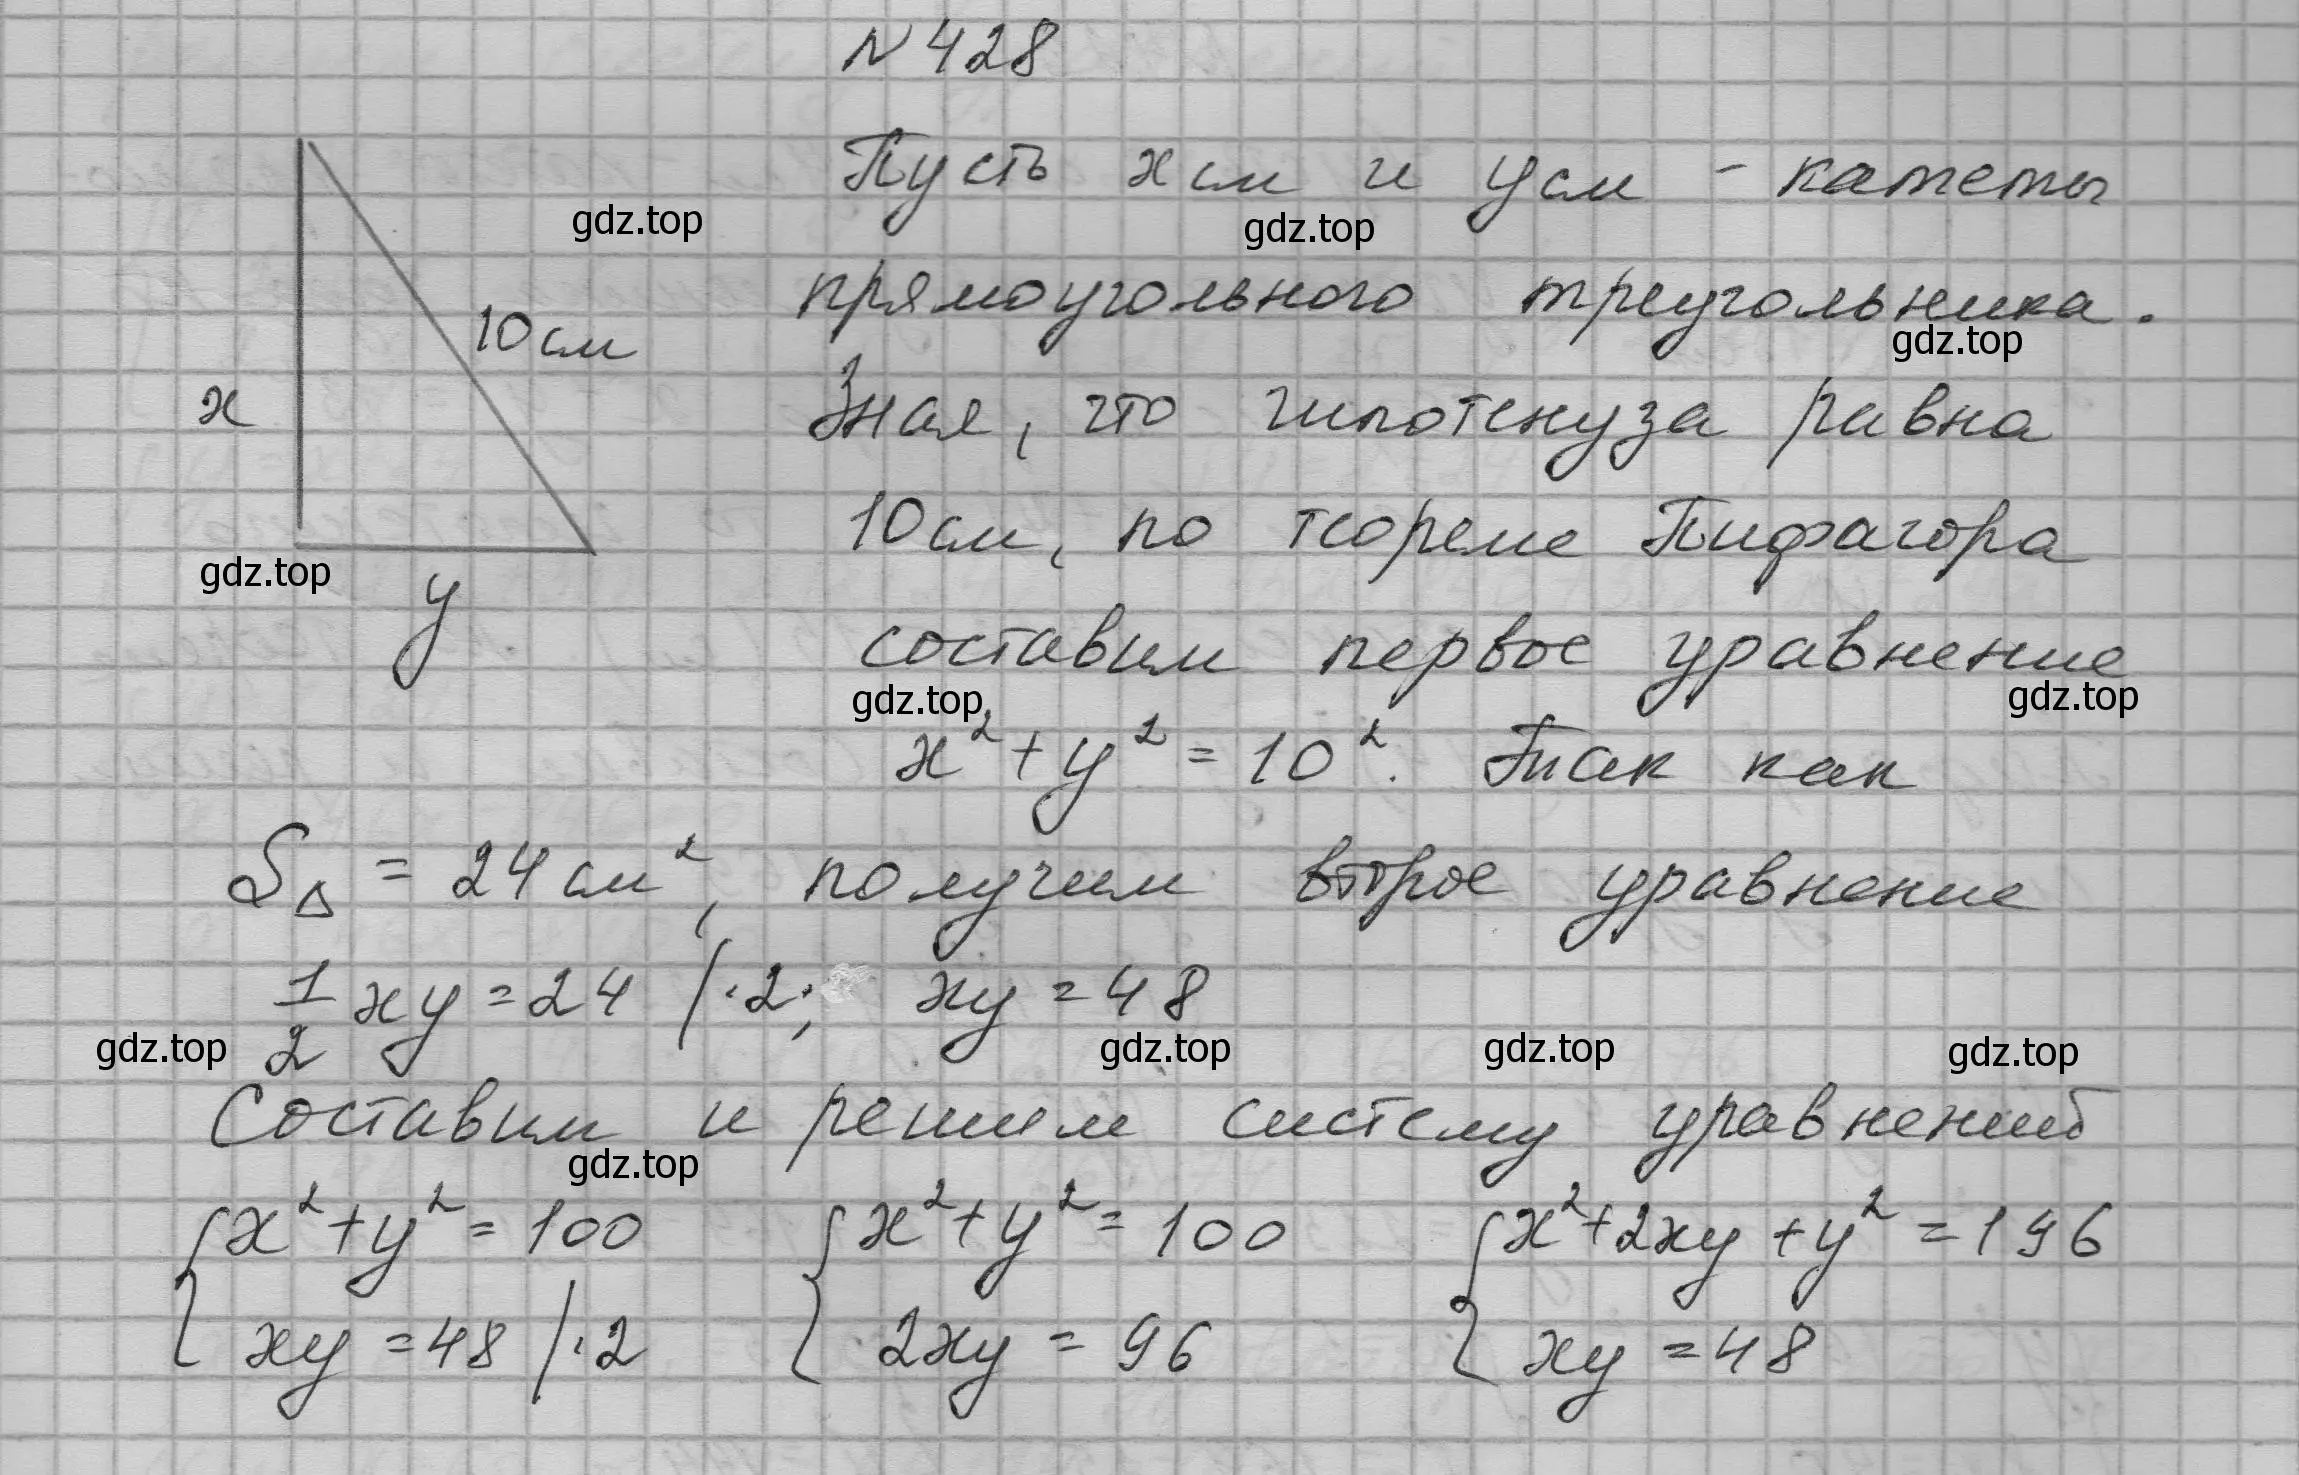 N 428
Пусть x см и y см - катеты
gdz.top
gdz.top
прямоугольного треугольника.
10 см
gdz.top
x
Зная, что гипотенуза равна
10 см, по теореме Пифагора
gdz.top
y
составим первое уравнение
gdz.top
gdz.top
x² + y² = 10². Так как
S△ = 24 см², получим второе уравнение
1/2 xy = 24 /·2; xy = 48
gdz.top
gdz.top
gdz.top
gdz.top
Составим и решим систему уравнений
gdz.top
{ x² + y² = 100 { x² + y² = 100 { x² + 2xy + y² = 196
xy = 48 /·2 2xy = 96 xy = 48